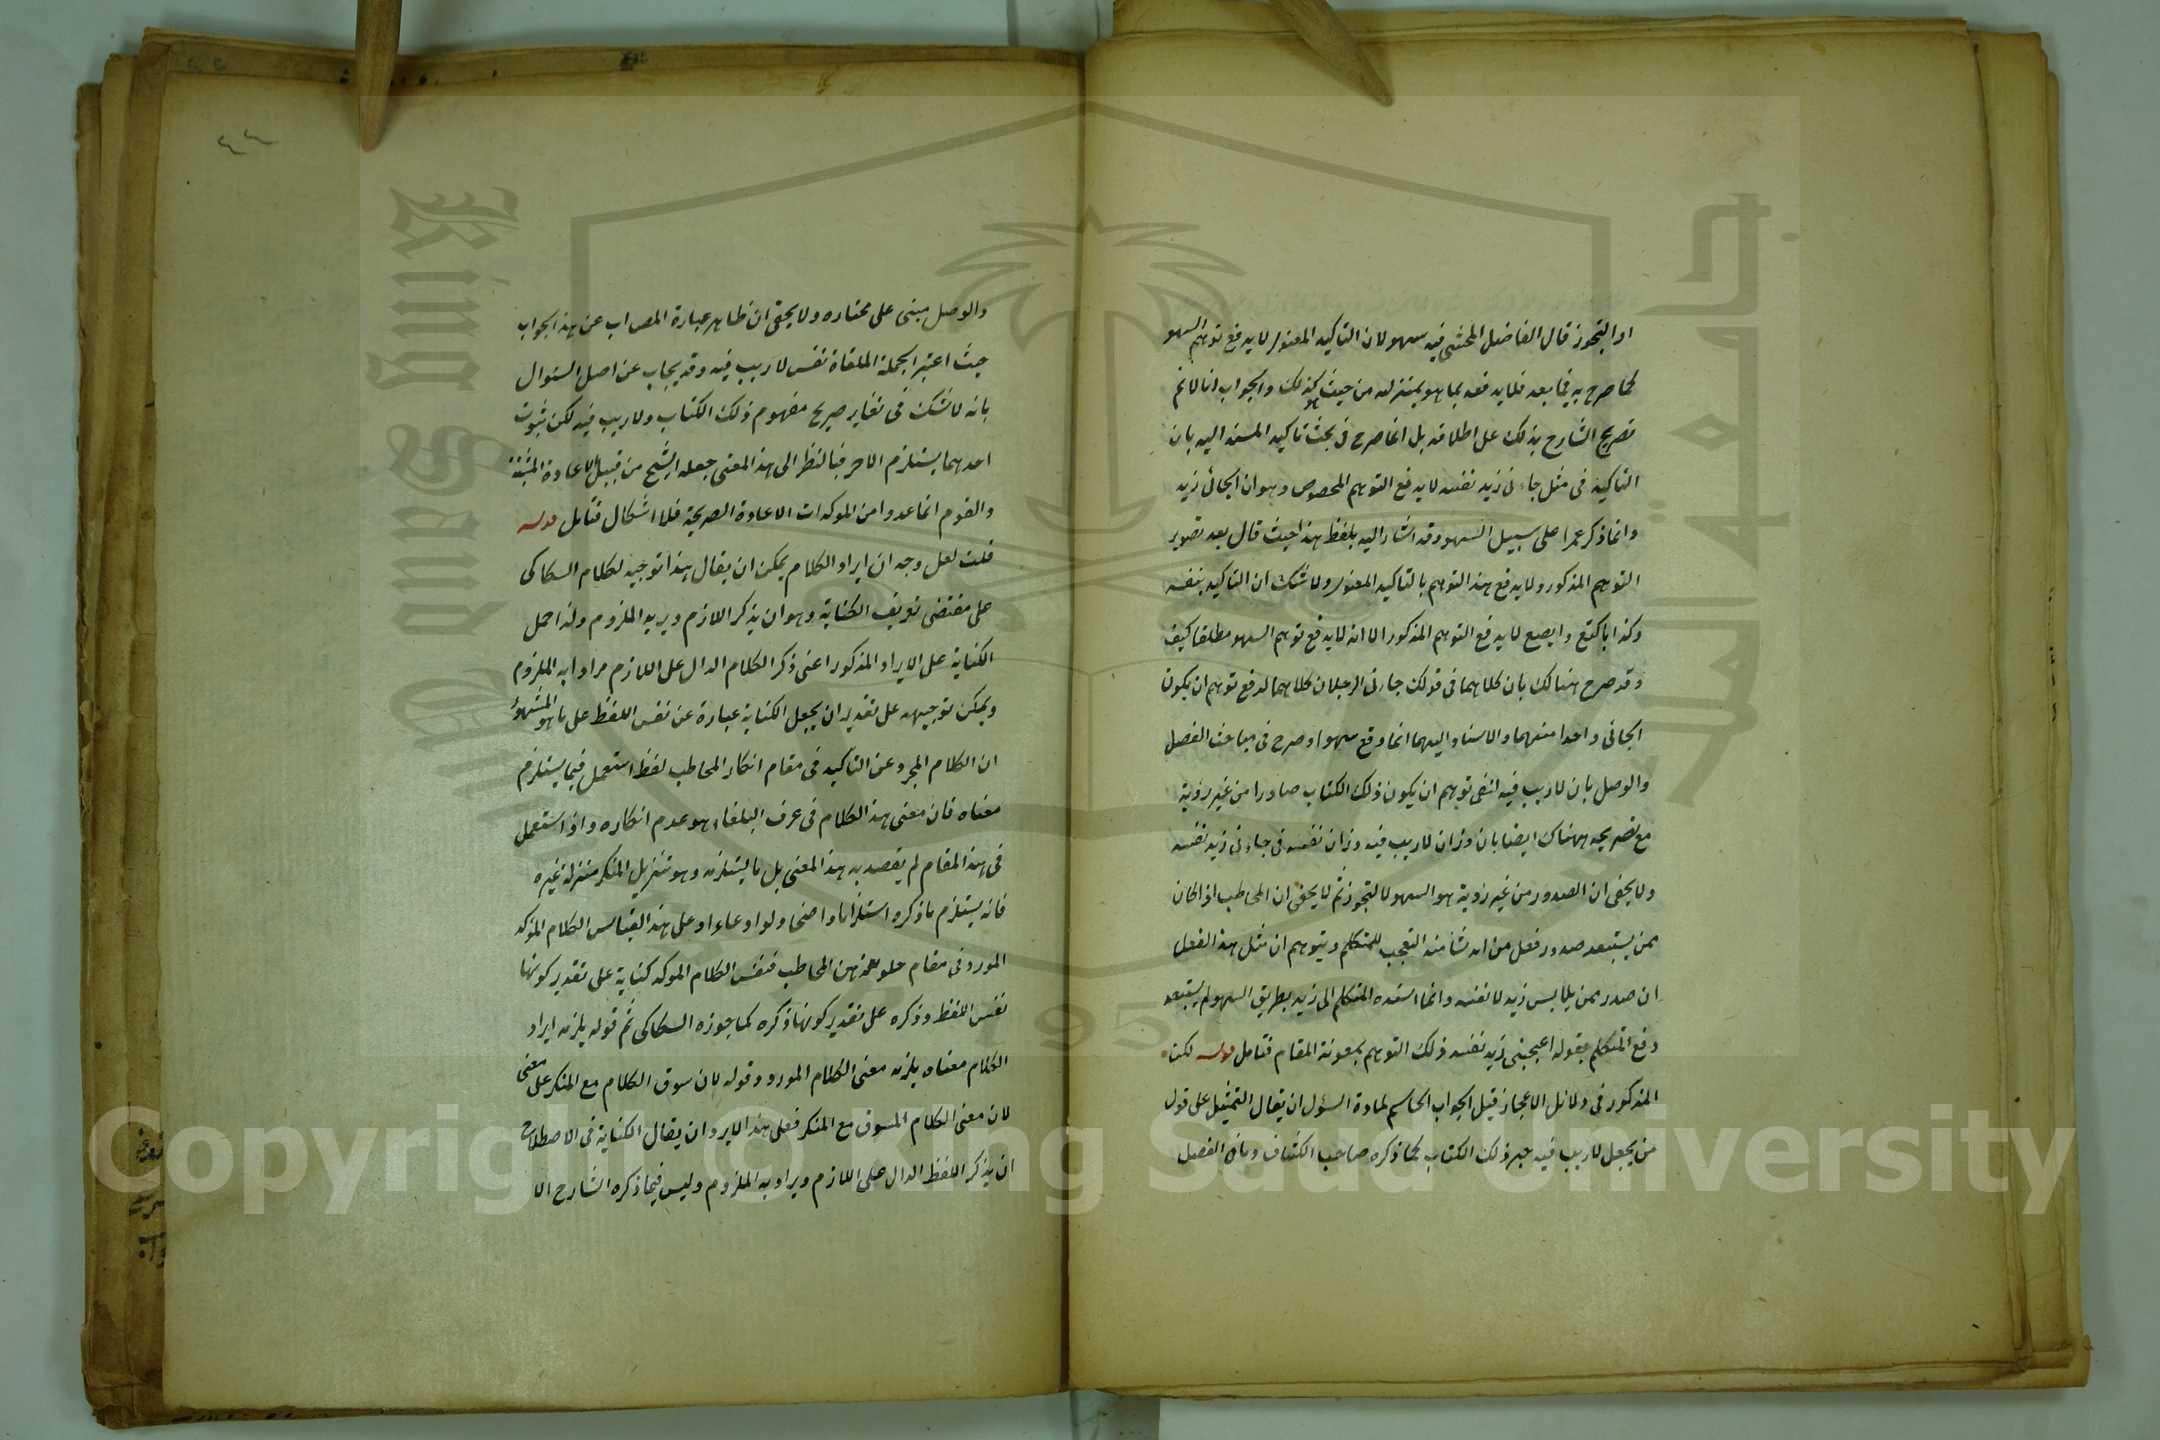 او التجوز قال الفاضل المحشى فيه سهو لان التاكيد المعنوى لا يدفع توهم السهو
كما صرح به فيما بعد فلا يدفعه بما هو بمنزلته من حيث هو كذلك والجواب انا لا نم
تصريح الشارح بذلك على اطلاقه بل انما صرح فى بحث تاكيد المسند اليه بان
التاكيد فى مثل جاءنى زيد نفسه لا يدفع التوهم المخصوص وهو ان الجائى زيد
وانما ذكر عمرا على سبيل السهو وقد اشار اليه بلفظ هذا حيث قال بعد تصوير
التوهم المذكور ولا يدفع هذا التوهم بالتاكيد المعنوى ولا شك ان التاكيد بنفسه
وكذا باكتع وابصع لا يدفع التوهم المذكور الا انه لا يدفع توهم السهو مطلقا كيف
وقد صرح هنالك بان كلاهما فى قولك جاءنى الرجلان كلاهما لدفع توهم ان يكون
الجائى واحدا منهما والاسناد اليهما انما وقع سهوا وصرح فى مباحث الفصل
والوصل بان لا ريب فيه لنفى توهم ان يكون ذلك الكتاب صادرا من غير روية
مع تصريحه هناك ايضا بان وزان لا ريب فيه وزان نفسه فى جاءنى زيد نفسه
ولا يخفى ان الصدور من غير روية هو السهو لا التجوز ثم لا يخفى ان المخاطب اذا كان
ممن يستبعد صدور فعل من انه نشأ منه التعجب للمتكلم ويتوهم ان مثل هذا الفعل
ان صدر ممن يلابس زيد لا نفسه وانما اسنده المتكلم الى زيد بطريق السهو لم يستبعد
دفع المتكلم بقوله اعجبنى زيد نفسه ذلك التوهم بمعونة المقام فتامل قوله لكن
المذكور فى دلائل الاعجاز قيل الجواب الحاسم لمادة السؤل ان يقال التمثيل على قول
من يجعل لا ريب فيه خبر ذلك الكتاب كما ذكره صاحب الكشاف وبان الفصل
والوصل مبنى على مختاره ولا يخفى ان ظاهر عبارة المص اب عن هذا الجواب
حيث اعتبر الجملة الملقاة نفس لا ريب فيه وقد يجاب عن اصل السئوال
بانه لا شك فى تغاير صريح مفهوم ذلك الكتاب ولا ريب فيه لكن ثبوت
احدهما يستلزم الاخر فبالنظر الى هذا المعنى جعله الشيخ من قبيل الاعادة
والقوم انما عدوا من الموكدات الاعادة الصريحة فلا اشكال فتامل قوله
قلت لعل وجه ان ايراد الكلام يمكن ان يقال هذا توجيه لكلام السكاكى
على مقتضى تعريف الكناية وهو ان يذكر اللازم ويريد الملزوم ولذا حمل
الكناية على الايراد المذكور اعنى ذكر الكلام الدال على اللازم مرادا به الملزوم
ويمكن توجيهه على تقدير ان يجعل الكناية عبارة عن نفس اللفظ على ما هو المشهور
ان الكلام المجرد عن التاكيد فى مقام انكار المخاطب لفظ استعمل فيما يستلزم
معناه فان معنى هذا الكلام فى عرف البلغاء هو عدم انكاره واذا استعمل
فى هذا المقام لم يقصد به هذا المعنى بل ما يستلزمه وهو تنزيل المنكر منزلة غيره
فانه يستلزم ما ذكره استلزاما واضحا ولو ادعاء او على هذا القياس الكلام المؤكد
المورد فى مقام خلو ذهن المخاطب فنفس الكلام الموكد كناية على تقدير كونها
نفس اللفظ وذكره على تقدير كونها ذكره كما جوزه السكاكى ثم قوله يلزمه ايراد
الكلام معناه يلزمه معنى الكلام المورد وقوله لان سوق الكلام مع المنكر على معنى
لان معنى الكلام المسوق مع المنكر فعلى هذا لا يرد ان يقال الكناية فى الاصطلاح
ان يذكر اللفظ الدال على اللازم ويراد به الملزوم وليس فيما ذكره الشارح الا
Copyright © King Saud University